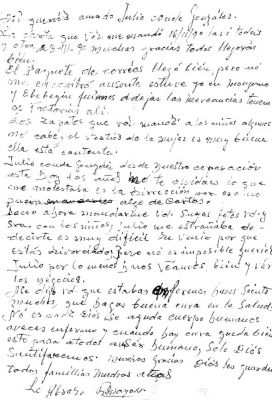 Mi querido amado Julio conde Gonzáles.
La carta que Vd me mandó 16/11/90 la i todas
y otra muchas gracias todos llegaron
bién.
El Paquete de correos llegó bién, pero no
me encontró ausente estuve yo en mongomo
y Ebebeyin fuimos a dejar las mercancias tenem
os factorias ali.
Los zapatos que vd mandó a los niños algunos
no cabe, el vestido de la mujer es muy buena
ella está contenta.
Julio conde Gonzáles desde nuestra separación
esta hoy dos años no te olvidado lo que
me molestaba es la dirección por eso no
puedo algo de Cartas.
Deseo ahora mandarme vd sus fotos
con los niños, Julio me extrañaba de
decirte es muy dificil de por que
estás divorciados, pero no es imposible querido
Julio por lo menos nos veamos bien y ver
los negocios.
Me dijo vd que estabas enfermo hace siento
mucho, que hagas buena cura en la Salud.
No es nada Dios no ayuda cuerpo humano
aveces enfermo y cuando hay cura queda bién
esto para a todos ser humano, Solo Diós
Santificamos. muchas Gracias Diós les guarde
todos familias muchos
Le Abrazo